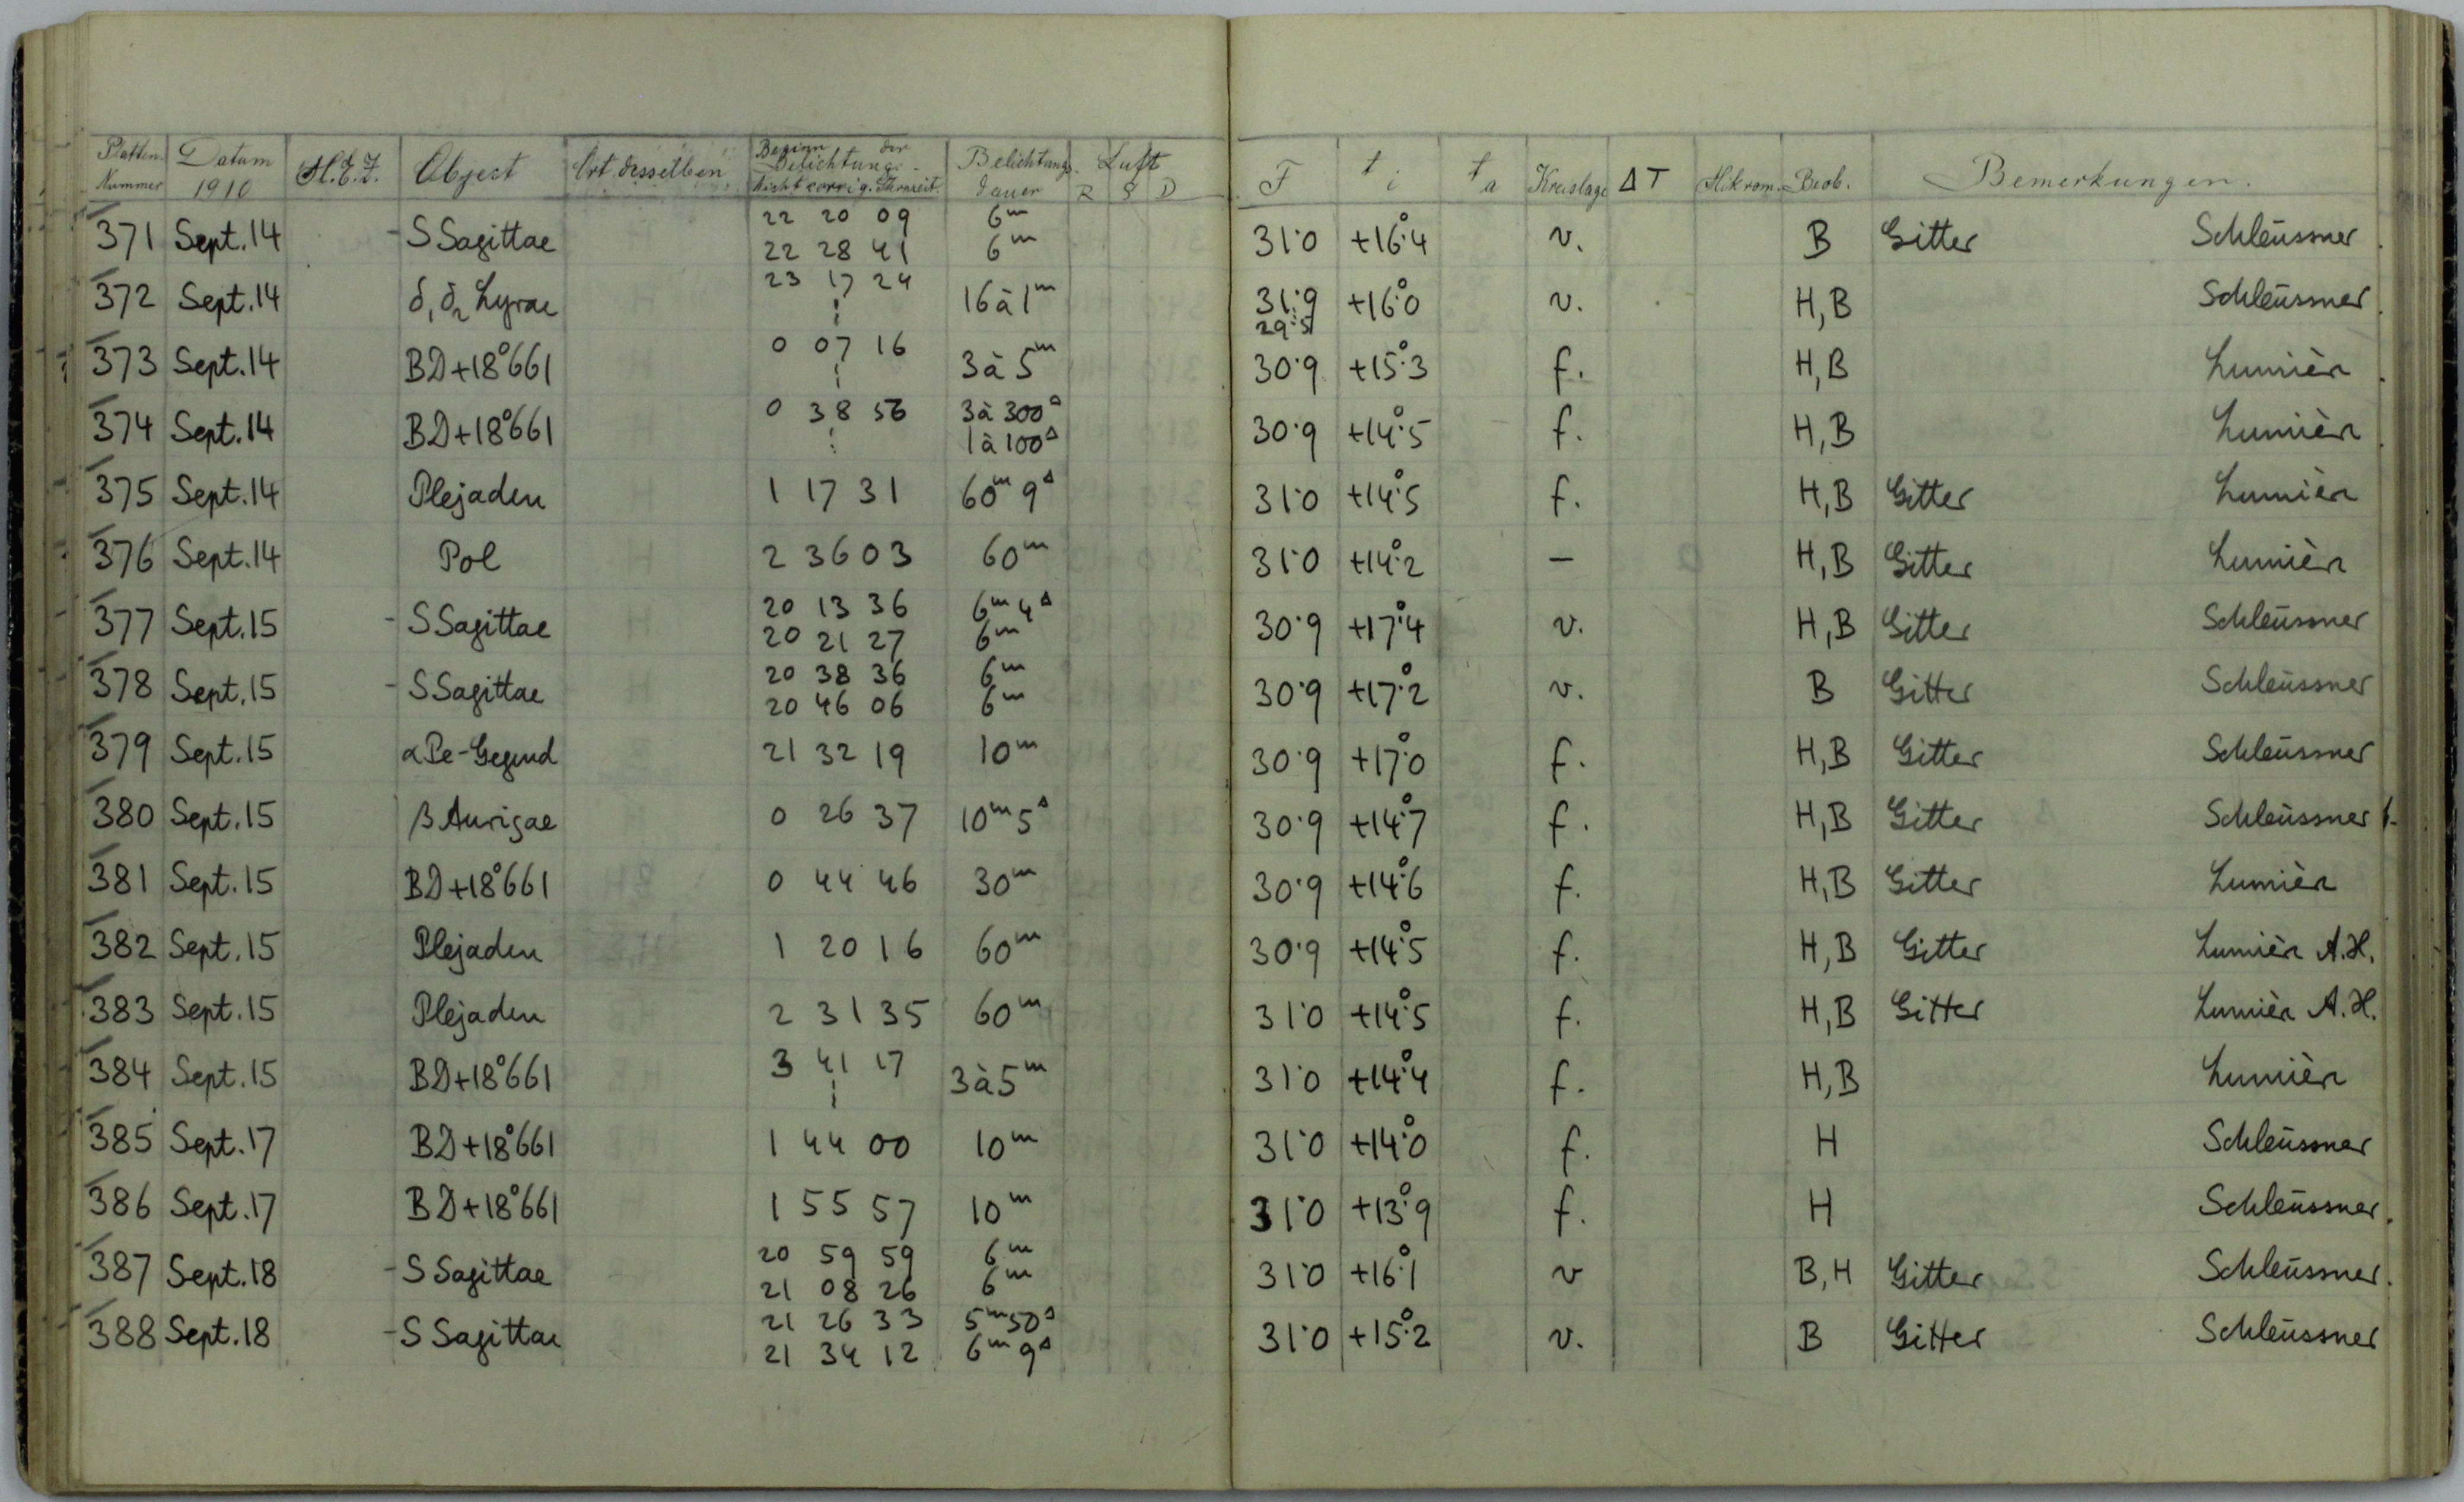 Platten Nummer Datum 1910 M.E.Z. Object Ort desselben Beginn der Belichtung. Nicht corrig. Uhrzeit. Belichtungs dauer Luft R S D F t i t a Kreislage ΔT Mikrom. Beob. Bemerkungen.
371 Sept. 14 - S Sagittae 22 20 09 6m 31.0 +16°.4 v. B Gitter Schleussner
22 28 41 6m
372 Sept. 14 δ1 δ2 Lyrae 23 17 24 16 à 1m 31.9 +16°.0 v. H, B Schleussner
29.5
373 Sept. 14 BD+18°661 0 07 16 3 à 5m 30.9 +15°.3 f. H, B Lumièr
374 Sept. 14 BD+18°661 0 38 56 3 à 300s 30.9 +14°.5 f. H, B Lumièr
1 à 100s
375 Sept. 14 Plejaden 1 17 31 60m 9s 31.0 +14°.5 f. H, B Gitter Lumièr
376 Sept. 14 Pol 2 36 03 60m 31.0 +14°.2 – H, B Gitter Lumièr
377 Sept. 15 - S Sagittae 20 13 36 6m 4s 30.9 +17°.4 v. H, B Gitter Schleussner
20 21 27 6m
378 Sept. 15 - S Sagittae 20 38 36 6m 30.9 +17°.2 v. B Gitter Schleussner
20 46 06 6m
379 Sept. 15 α Pe-Gegend 21 32 19 10m 30.9 +17°.0 f. H, B Gitter Schleussner
380 Sept. 15 β Aurigae 0 26 37 10m 5s 30.9 +14°.7 f. H, B Gitter Schleussner
381 Sept. 15 BD+18°661 0 44 46 30m 30.9 +14°.6 f. H, B Gitter Lumièr
382 Sept. 15 Plejaden 1 20 16 60m 30.9 +14°.5 f. H, B Gitter Lumièr A.H.
383 Sept. 15 Plejaden 2 31 35 60m 31.0 +14°.5 f. H, B Gitter Lumièr A.H.
384 Sept. 15 BD+18°661 3 41 17 3 à 5m 31.0 +14°.4 f. H, B Lumièr
385 Sept. 17 BD+18°661 1 44 00 10m 31.0 +14°.0 f. H Schleussner
386 Sept. 17 BD+18°661 1 55 57 10m 31.0 +13°.9 f. H Schleussner.
387 Sept. 18 - S Sagittae 20 59 59 6m 31.0 +16°.1 v B, H Gitter Schleussner.
21 08 26 6m
388 Sept. 18 - S Sagittae 21 26 33 5m 50s 31.0 +15°.2 v. B Gitter Schleussner
21 34 12 6m 9s